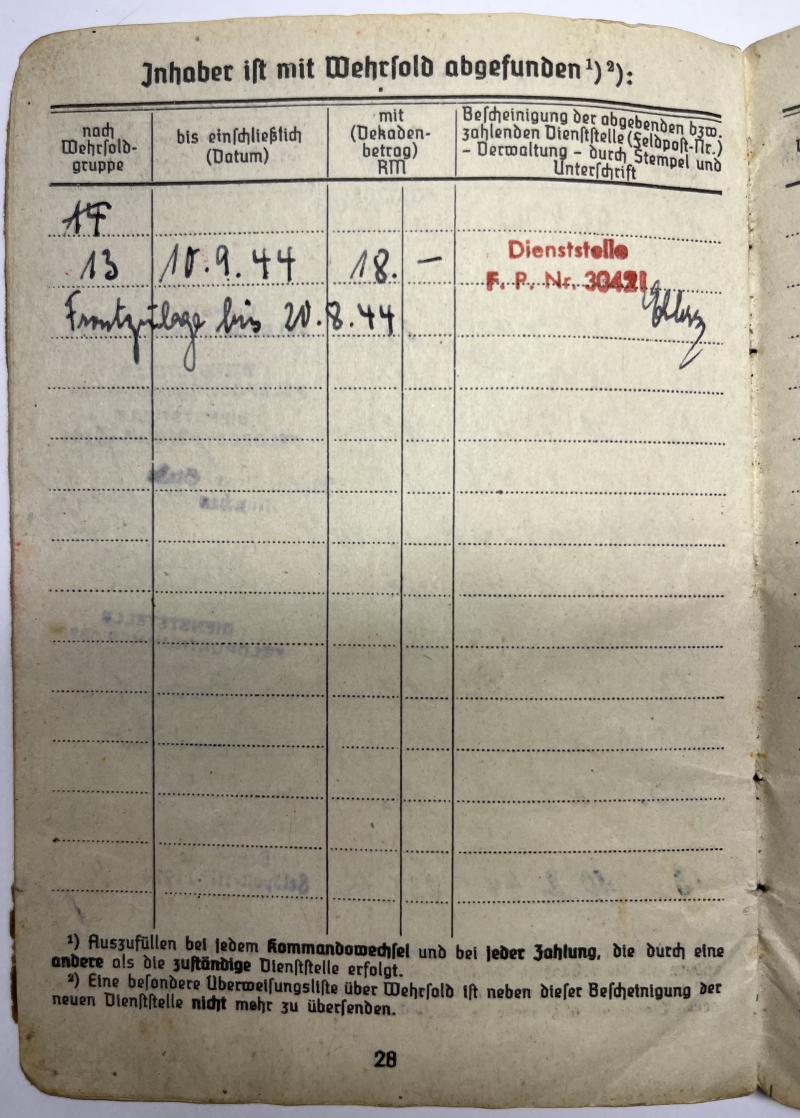 Inhaber ist mit Wehrsold abgefunden ¹) ²):
nach Wehrsold-gruppe
bis einschließlich (Datum)
mit (Dekaden-betrag) RM
Bescheinigung der abgebenden bzw.
zahlenden Dienststelle (Feldpost-Nr.)
– Verwaltung – durch Stempel und
Unterschrift
Dienststelle
13 10.9.44 18. –
F. P. Nr. 30421
Frontzulage bis 20.8.44
¹) Auszufüllen bei jedem Kommandowechsel und bei jeder Zahlung, die durch eine
andere als die zuständige Dienststelle erfolgt.
²) Eine besondere Überweisungsliste über Wehrsold ist neben dieser Bescheinigung der
neuen Dienststelle nicht mehr zu übersenden.
28